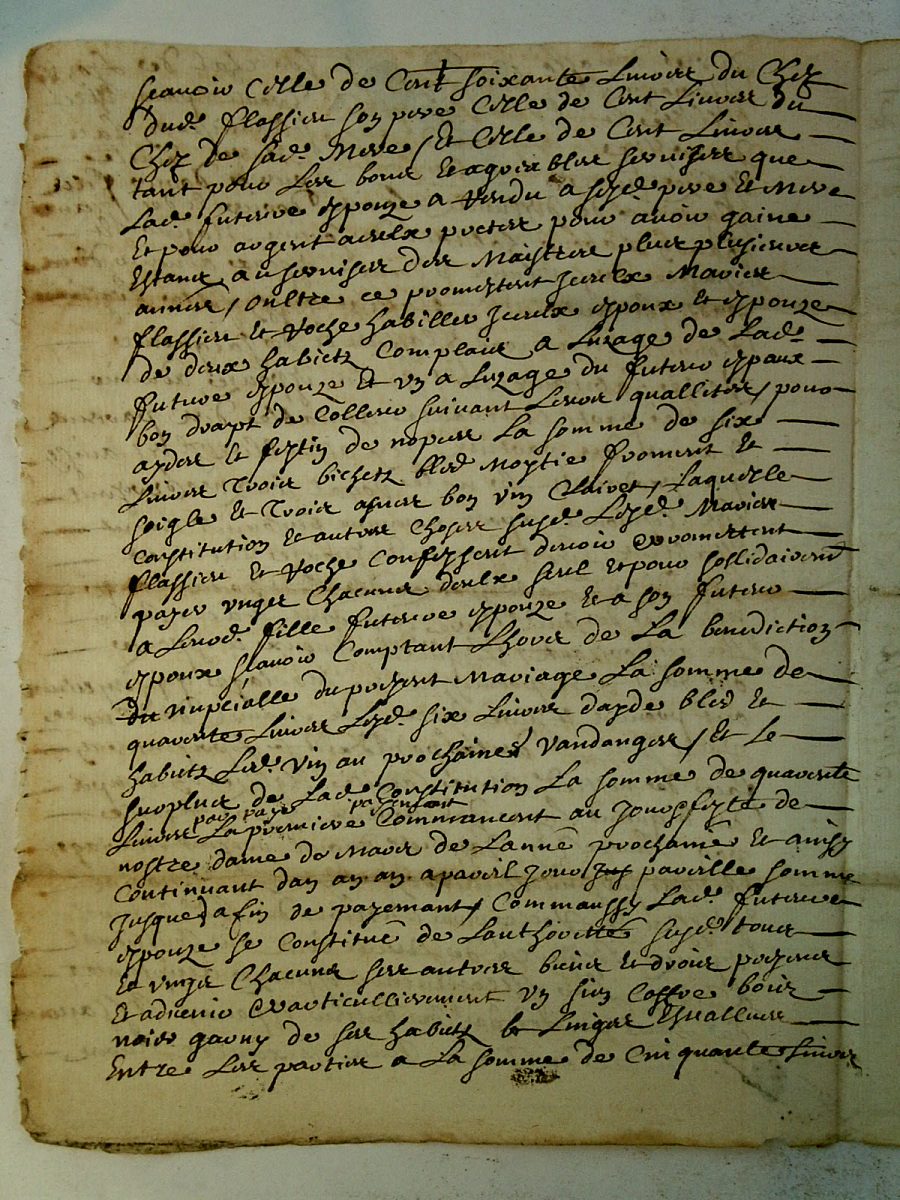 scauoir Celle de Cent soixante Liuvres du Chef
dud. flassieu son pere Celle de Cent Liuvres du
Chef de sad. Mere / Et Celle de Cent Liuvres
tant pour Les bons Et agreables seruisses que
Lad. future espouze a rendu a sesd. pere Et Mere
Et pour argent a ceulx prester pour auoir gaine
Estant au seruisses des Maistres plus plusieurs
annees / oultre ce promettent Iceulx Maries
flassieu Et Roche habiller Iceulx espoux Et espouze
de deux habietz Complais a Luzage de Lad.
future espouze Et un a Luzage du futeur espoux
bon drapt de Colleur suiuant Leurs quallites / pour
aydes Et festin de nopces La somme de six
Liuvres Trois bichetz bled Moytie froment Et
soigle Et Trois asnees bon vin Clairet, Laquelle
Constitution Et autres Choses susd. Lesd. Maries
flassieu Et Roche Confessent deuoir Et promettent
payer Ungs Chacuns deulx seul Et pour sollidairemt
a Leurd. fille futeure espouze Et a son futeur
espoux scauoir Comptant Lhors de La benediction
nupcialle du present Mariage La somme de
quarente Liuvres Lesd. six Liuvres dayde bled Et
habietz Led. vin au prochaines vandanges / Et Le
surplus de Lad. Constitution La somme de quarente
Liuvres par paye payant
La premiere Commancent au Jour feste de
nostre dame de Mars de Lanne prochaine Et ainsy
Continuant dan an an a pareil Jour pareille somme
Jusques a fin de payemant, Comm aussy Lad. futeure
espouze se Constitue de Lauthorite susd. tous
Et ungs Chacuns ses autres biens Et drois presens
Et aduenir Et particullierement un sien Coffre bois
noier garny de ses habietz Et Linges Esualluez
Entre Les parties a La somme de Cinquante Liuvres